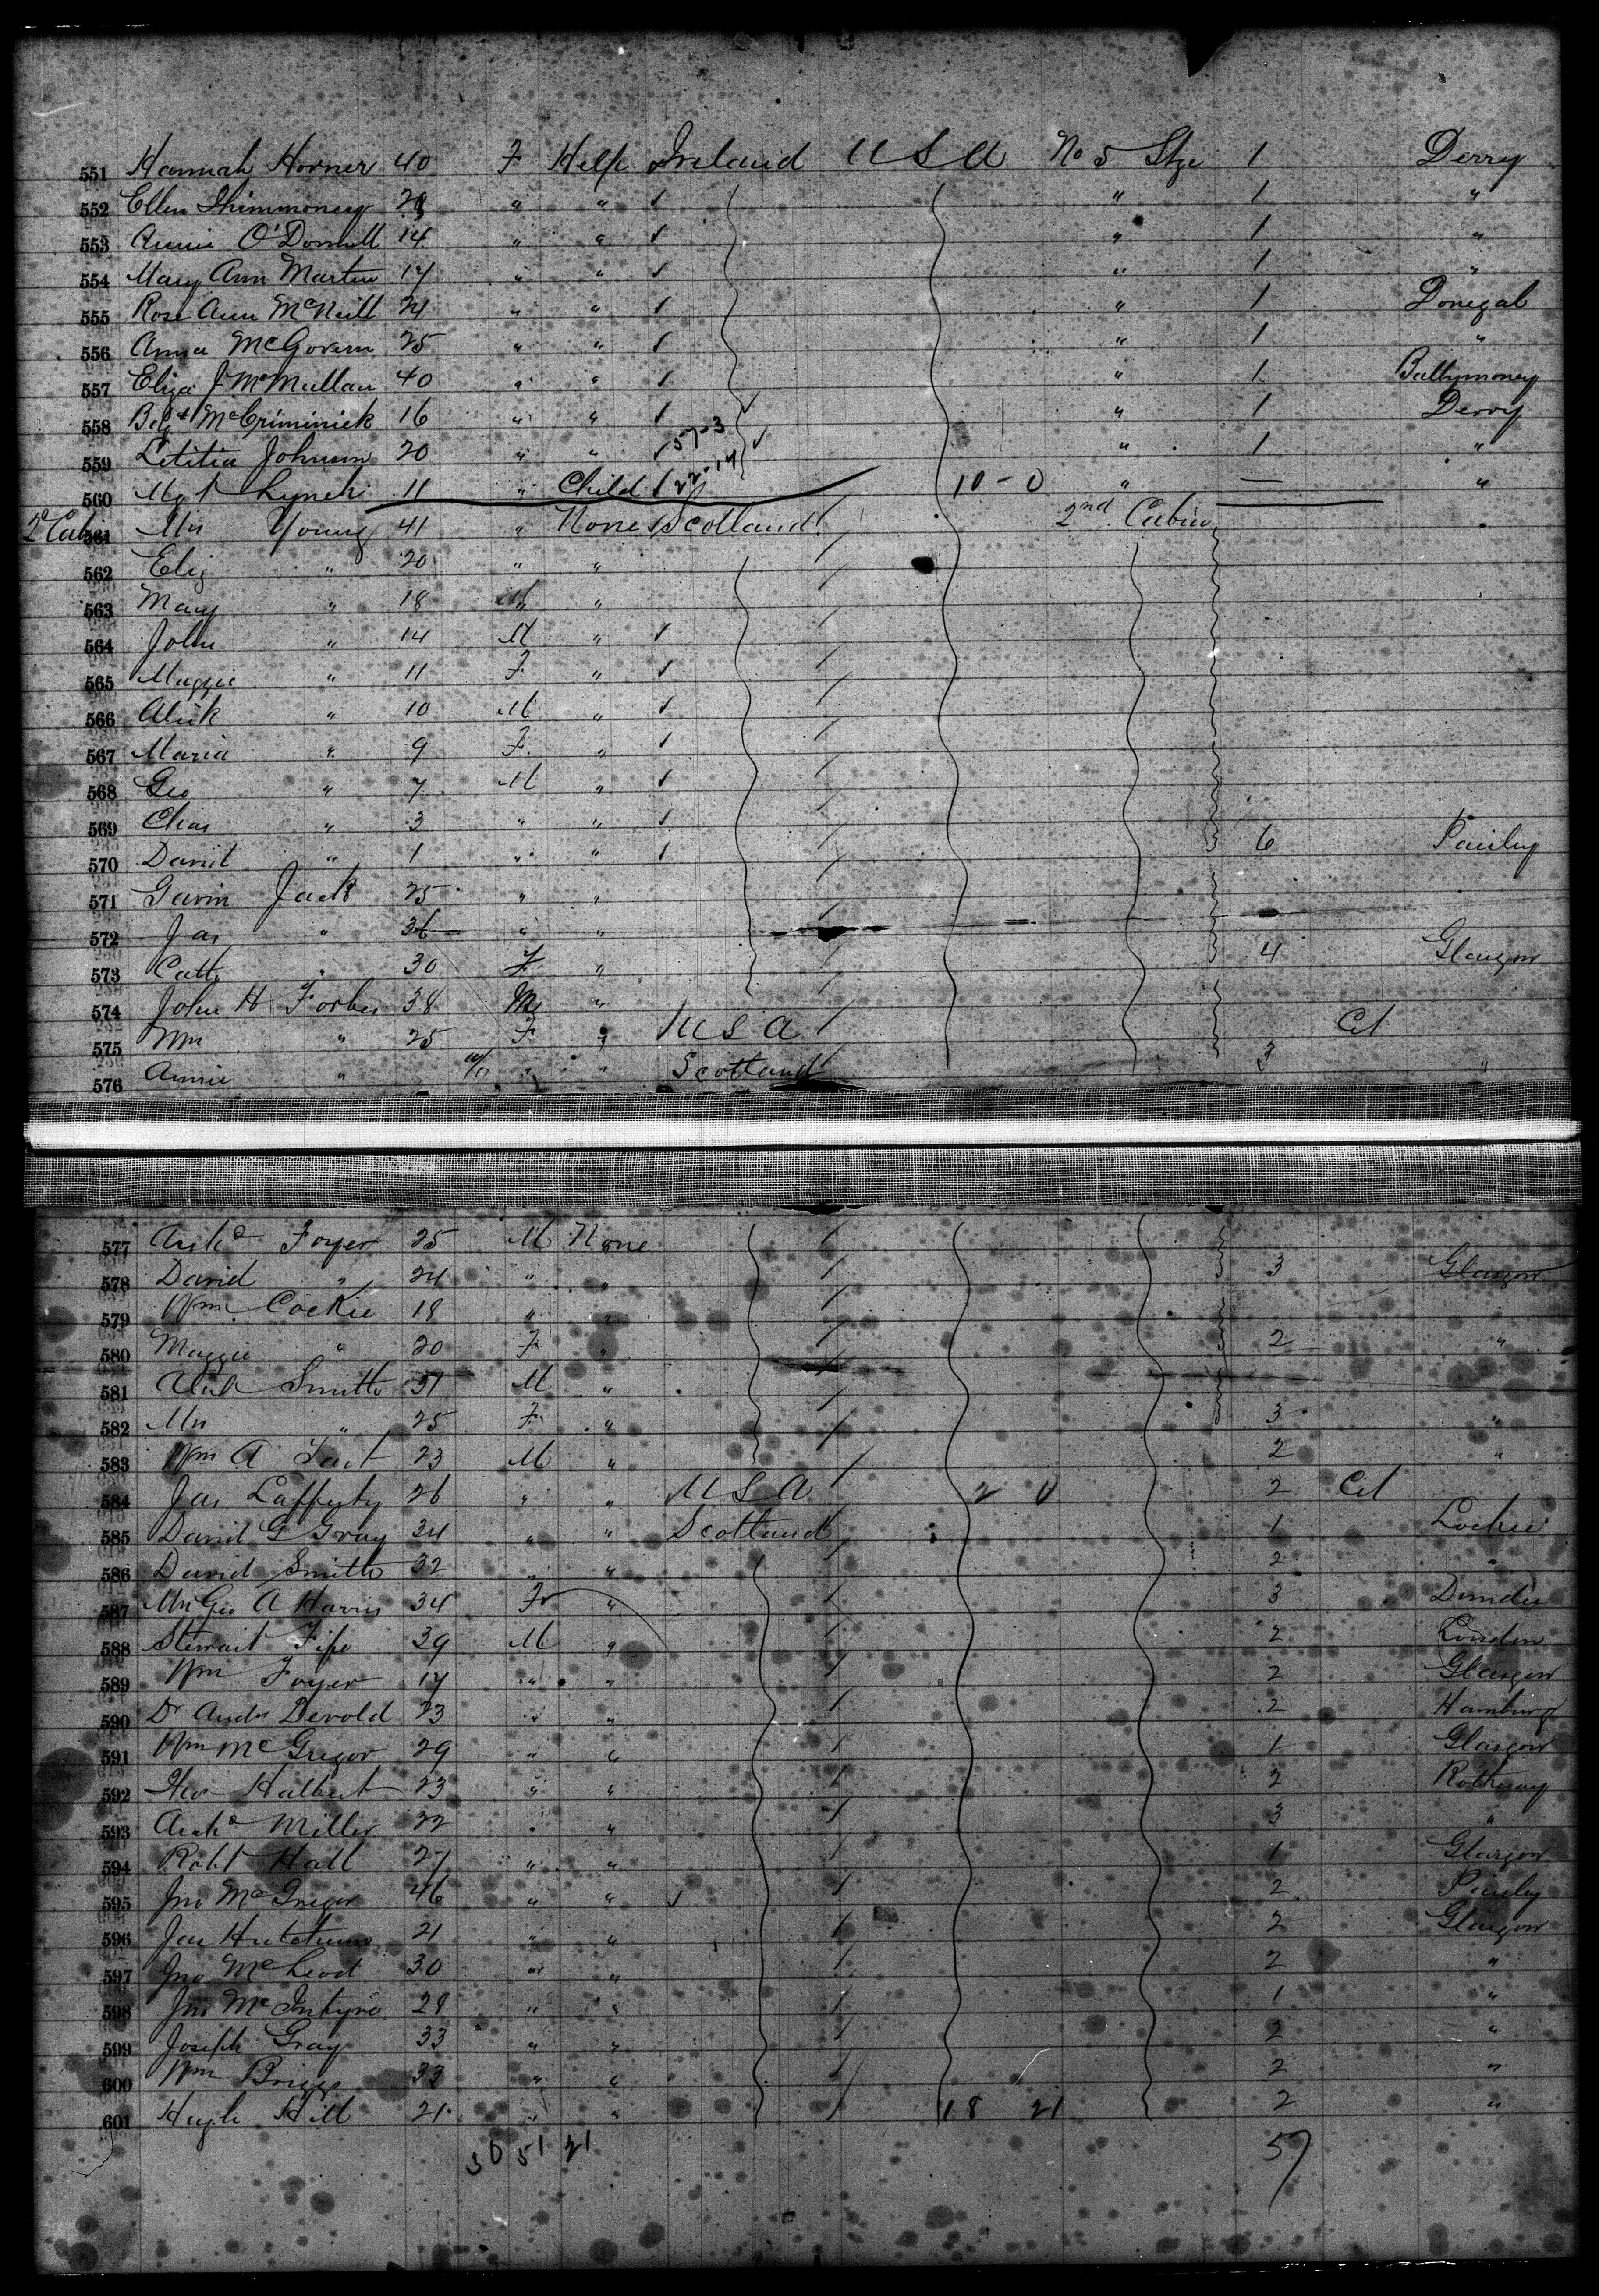 551 Hannah Horner 40 F Help Ireland U S A No 5 Stge 1 Derry
552 Ellen " " " 1 "
553 Annie O'Donnell 14 " " " 1 "
554 Mary Ann Martin 17 " " " 1 "
555 Rose Ann McNeill 24 " " " 1 Donegal
556 Anna McGovern 25 " " " 1 "
557 Eliza J McMullan 40 " " " 1 Ballymoney
558 McCriminick 16 " " " 1 Derry
559 Letitia Johnson 20 " " 57-3 " 1 "
560 Mgt Lynch 11 " Child 22-14 10-0 " — "
2d Cabin 561 Mrs Young 41 " None Scotland 2nd Cabin
562 Eliz " 20 " "
563 Mary " 18 "
564 John " 14 M "
565 Maggie " 11 F "
566 Alick " 10 M "
567 Maria " 9 F "
568 Geo " 7 M "
569 Chas " 3 " "
570 David " 1 " " 6 Paisley
571 Gavin Jack 25 " "
572 Jas " 36 " "
573 Cath " 30 F " 4 Glasgow
574 John H Forbes 38 M "
575 Wm " 25 F " U S A Cet
576 Annie " " " Scotland 3 "
577 Archd Foyer 25 M None
578 David " 24 " " 3 Glasgow
579 Wm Cockie 18 " "
580 Maggie " 20 F " 2 "
581 Smith 31 M "
582 Mrs " 25 F " 3 "
583 Wm A Tait 23 M " 2 "
584 Jas Lafferty 26 " " U S A 2 0 2 Cet
585 David G Gray 34 " " Scotland 1 Lochee
586 David Smith 32 " " 2 "
587 Mrs Geo A Harris 34 F " 3 Dundee
588 Stewart Fife 39 M " 2 London
589 Wm Foyer 17 " " 2 Glasgow
590 Dr Andw Devold 23 " " 2 Hamburg
591 Wm McGregor 29 " " 1 Glasgow
592 Halbert 23 " " 2 Rothesay
593 Archd Miller 22 " " 3 "
594 Robt Hall 27 " " 1 Glasgow
595 Jno McGregor 46 " " 2 Paisley
596 Jas Hutcheson 21 " " 2 Glasgow
597 Jno McLeod 30 " " 2 "
598 Jno McIntyre 28 " " 1 "
599 Joseph Gray 33 " " 2 "
600 Wm Briggs 33 " " 2 "
601 Hugh Hill 21 " " 18 21 2 "
30 51 21 57